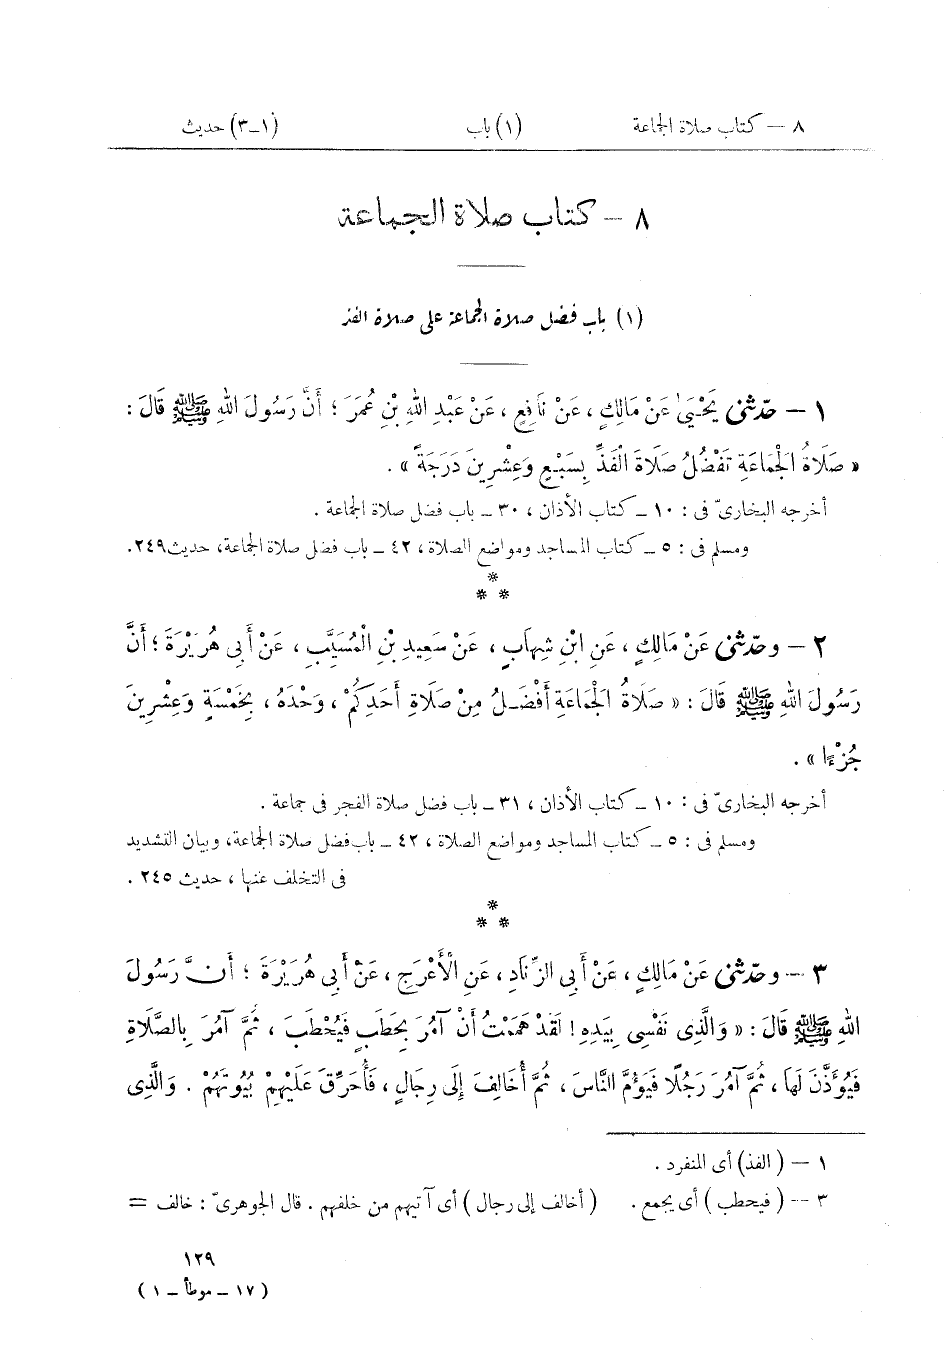 ٨ — كتاب صلاة الجماعة (١) باب (١-٣) حديث
٨ – كتاب صلاة الجماعة
(١) باب فضل صلاة الجماعة على صلاة الفذ
١ – حدّثنى يَحْيَىٰ عَنْ مَالِكٍ، عَنْ نَافِعٍ، عَنْ عَبْدِ اللهِ بْنِ عُمَرَ؛ أَنَّ رَسُولَ اللهِ ﷺ قَالَ:
« صَلَاةُ الْجَمَاعَةِ تَفْضُلُ صَلَاةَ الْفَذِّ بِسَبْعٍ وَعِشْرِينَ دَرَجَةً ».
أخرجه البخارىّ فى: ١٠ – كتاب الأذان، ٣٠ – باب فضل صلاة الجماعة.
ومسلم فى: ٥ – كتاب المساجد ومواضع الصلاة، ٤٢ – باب فضل صلاة الجماعة، حديث ٢٤٩.
*
* *
٢ – وحدّثنى عَنْ مَالِكٍ، عَنِ ابْنِ شِهَابٍ، عَنْ سَعِيدِ بْنِ الْمُسَيَّبِ، عَنْ أَبِى هُرَيْرَةَ؛ أَنَّ
رَسُولَ اللهِ ﷺ قَالَ: « صَلَاةُ الْجَمَاعَةِ أَفْضَلُ مِنْ صَلَاةِ أَحَدِكُمْ، وَحْدَهُ، بِخَمْسَةٍ وَعِشْرِينَ
جُزْءًا ».
أخرجه البخارىّ فى: ١٠ – كتاب الأذان، ٣١ – باب فضل صلاة الفجر فى جماعة.
ومسلم فى: ٥ – كتاب المساجد ومواضع الصلاة، ٤٢ – باب فضل صلاة الجماعة، وبيان التشديد
فى التخلف عنها، حديث ٢٤٥.
*
* *
٣ – وحدّثنى عَنْ مَالِكٍ، عَنْ أَبِى الزِّنَادِ، عَنِ الْأَعْرَجِ، عَنْ أَبِى هُرَيْرَةَ؛ أَنَّ رَسُولَ
اللهِ ﷺ قَالَ: « وَالَّذِى نَفْسِى بِيَدِهِ! لَقَدْ هَمَمْتُ أَنْ آمُرَ بِحَطَبٍ فَيُحْطَبَ، ثُمَّ آمُرَ بِالصَّلَاةِ
فَيُؤَذَّنَ لَهَا، ثُمَّ آمُرَ رَجُلًا فَيَؤُمَّ النَّاسَ، ثُمَّ أُخَالِفَ إِلَى رِجَالٍ، فَأُحَرِّقَ عَلَيْهِمْ بُيُوتَهُمْ. وَالَّذِى
١ – (الفذ) أى المنفرد.
٣ -- (فيحطب) أى يجمع. (أخالف إلى رجال) أى آتيهم من خلفهم. قال الجوهرىّ: خالف =
١٢٩
(١٧ – موطأ – ١)